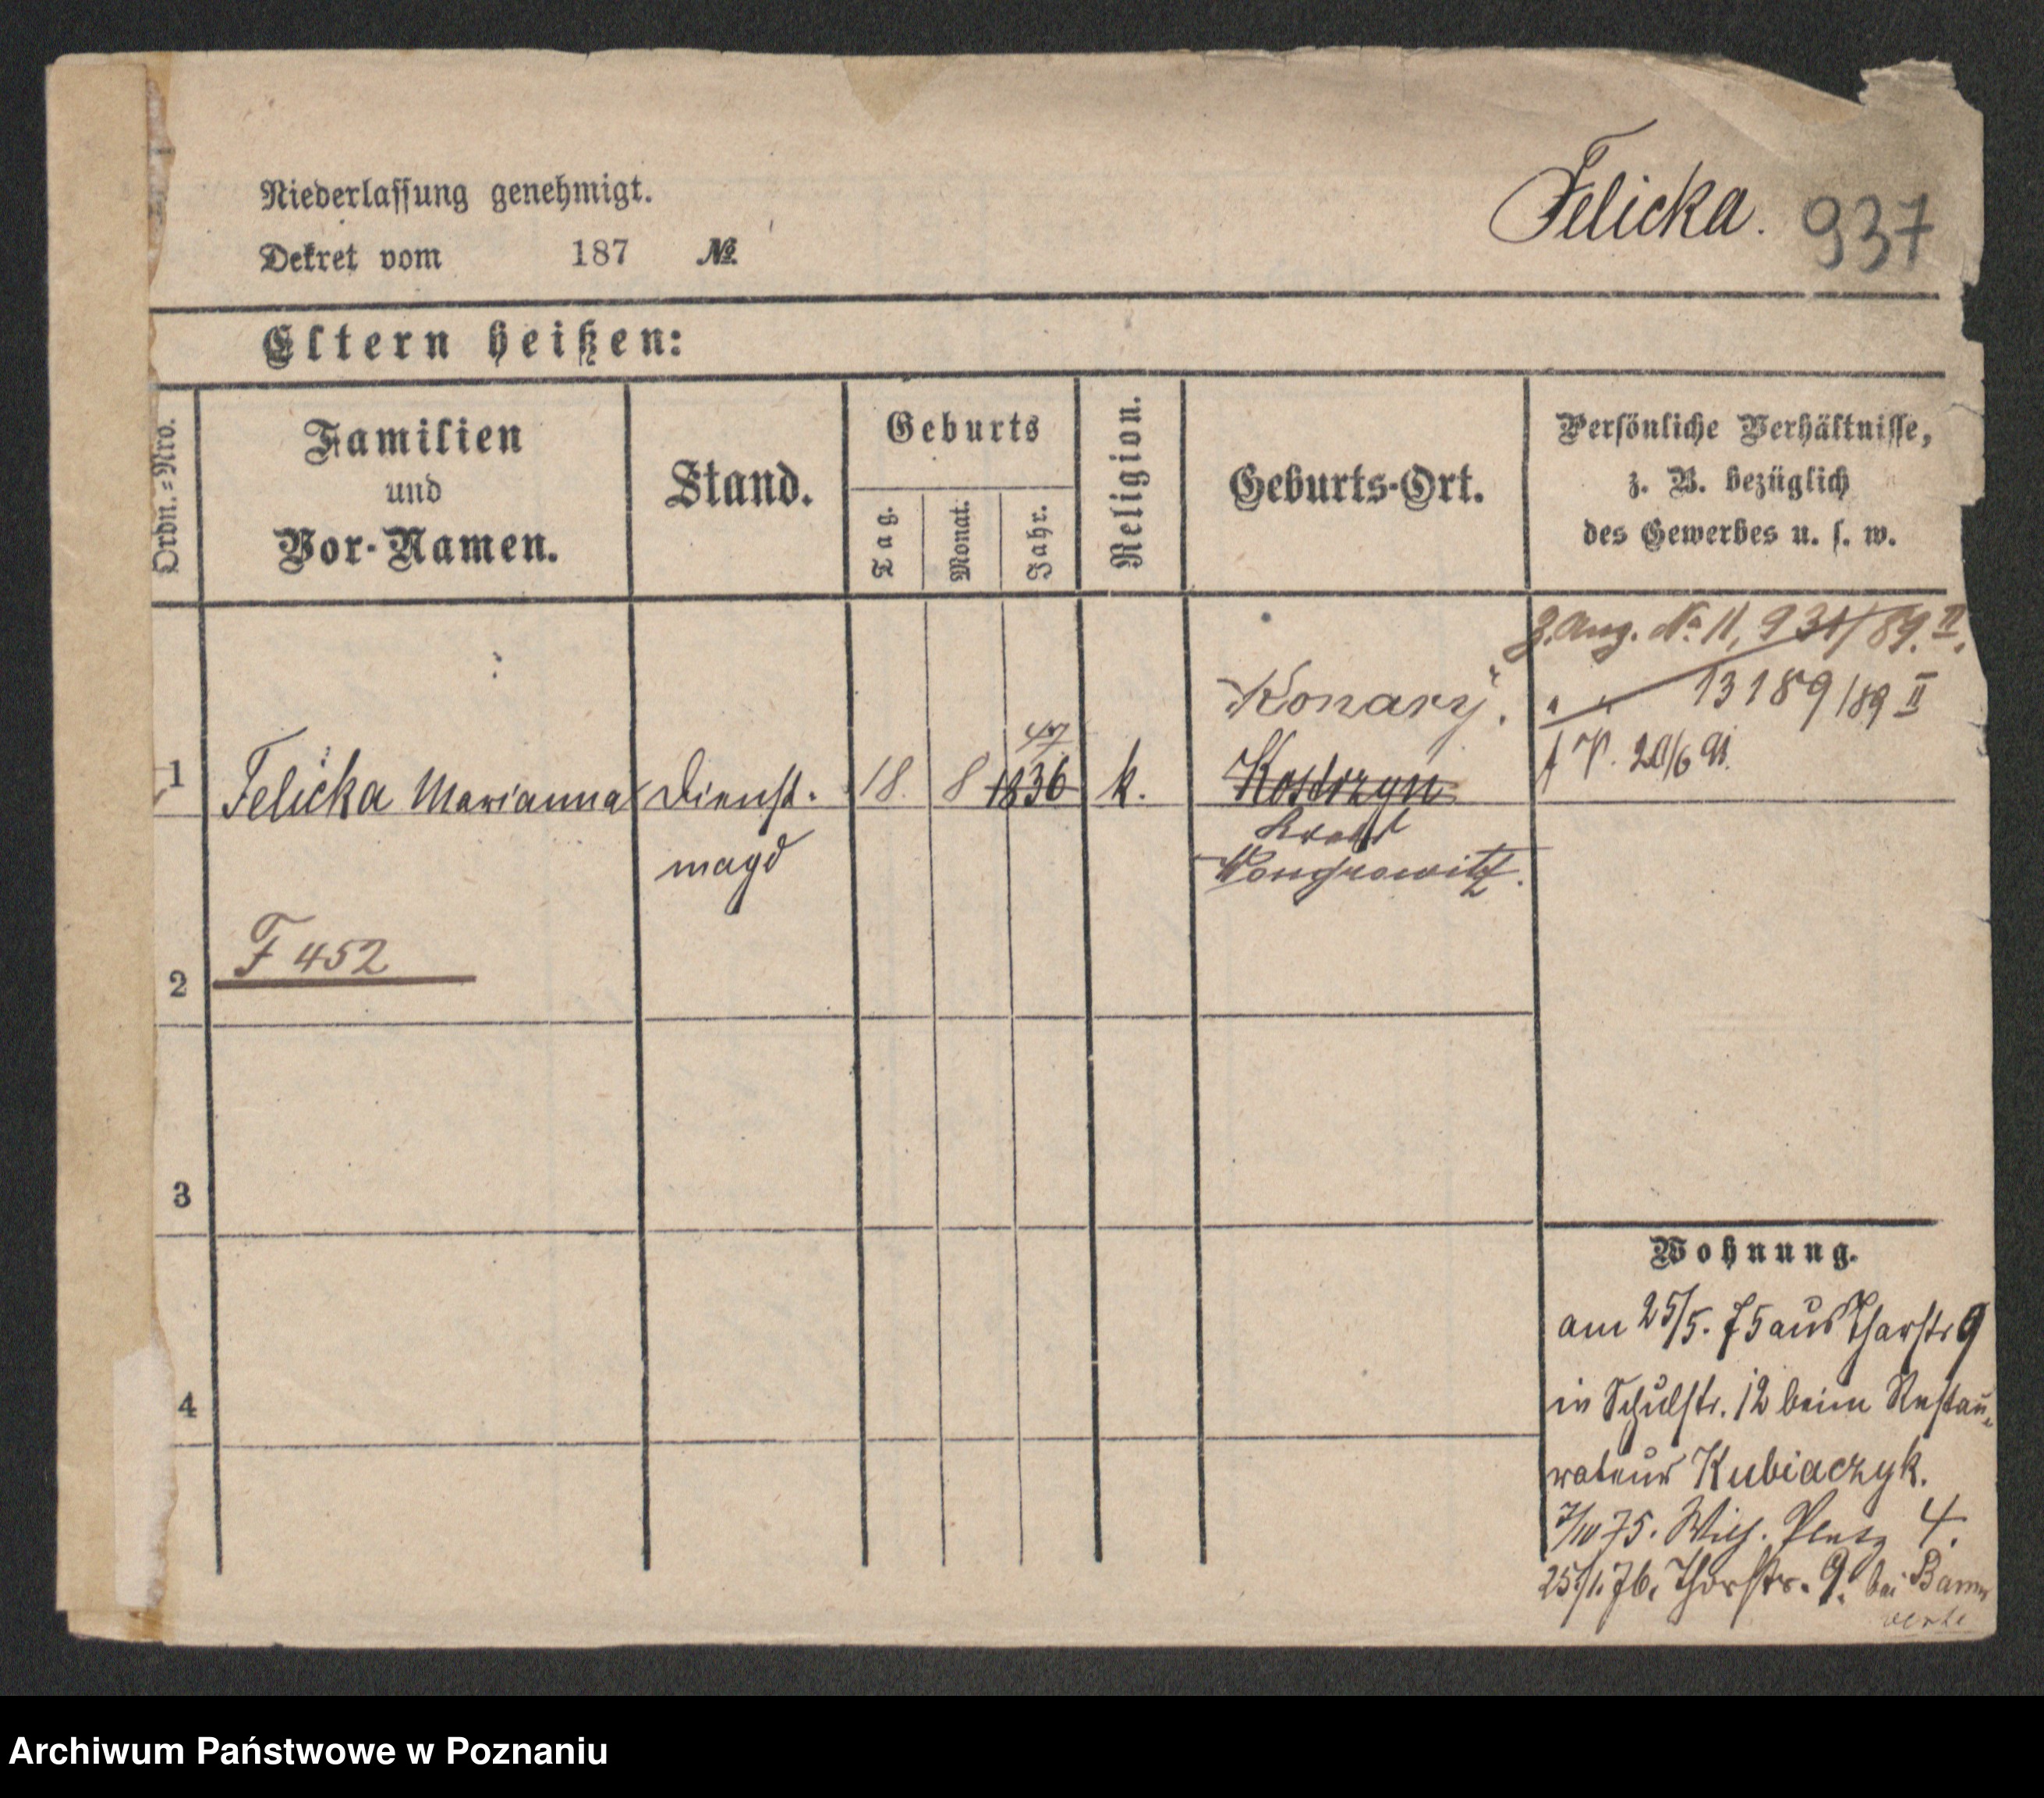 Niederlassung genehmigt.
Dekret vom 187 №
Felicka. 937
Eltern heißen:
Ordn.=Nro.
Familien
und
Vor-Namen.
Stand.
Geburts
Tag.
Monat.
Jahr.
Religion.
Geburts-Ort.
Persönliche Verhältnisse,
z. B. bezüglich
des Gewerbes u. s. w.
1 Felicka Marianna Dienst-
magd
18. 8 1836
47
k.
Konary.
Kostrzyn
Kreis
Wongrowitz.
Z. Ang. No 11, 931/89. II.
" " 13189/89 II
F 452
2
3
4
Wohnung.
am 25/5. 75 aus Thorstr 9
in Schulstr. 12 beim Restau-
rateur Kubiaczyk.
75. Wilh. Platz 4.
25/1. 76. Thorstr. 9. bei
Archiwum Państwowe w Poznaniu